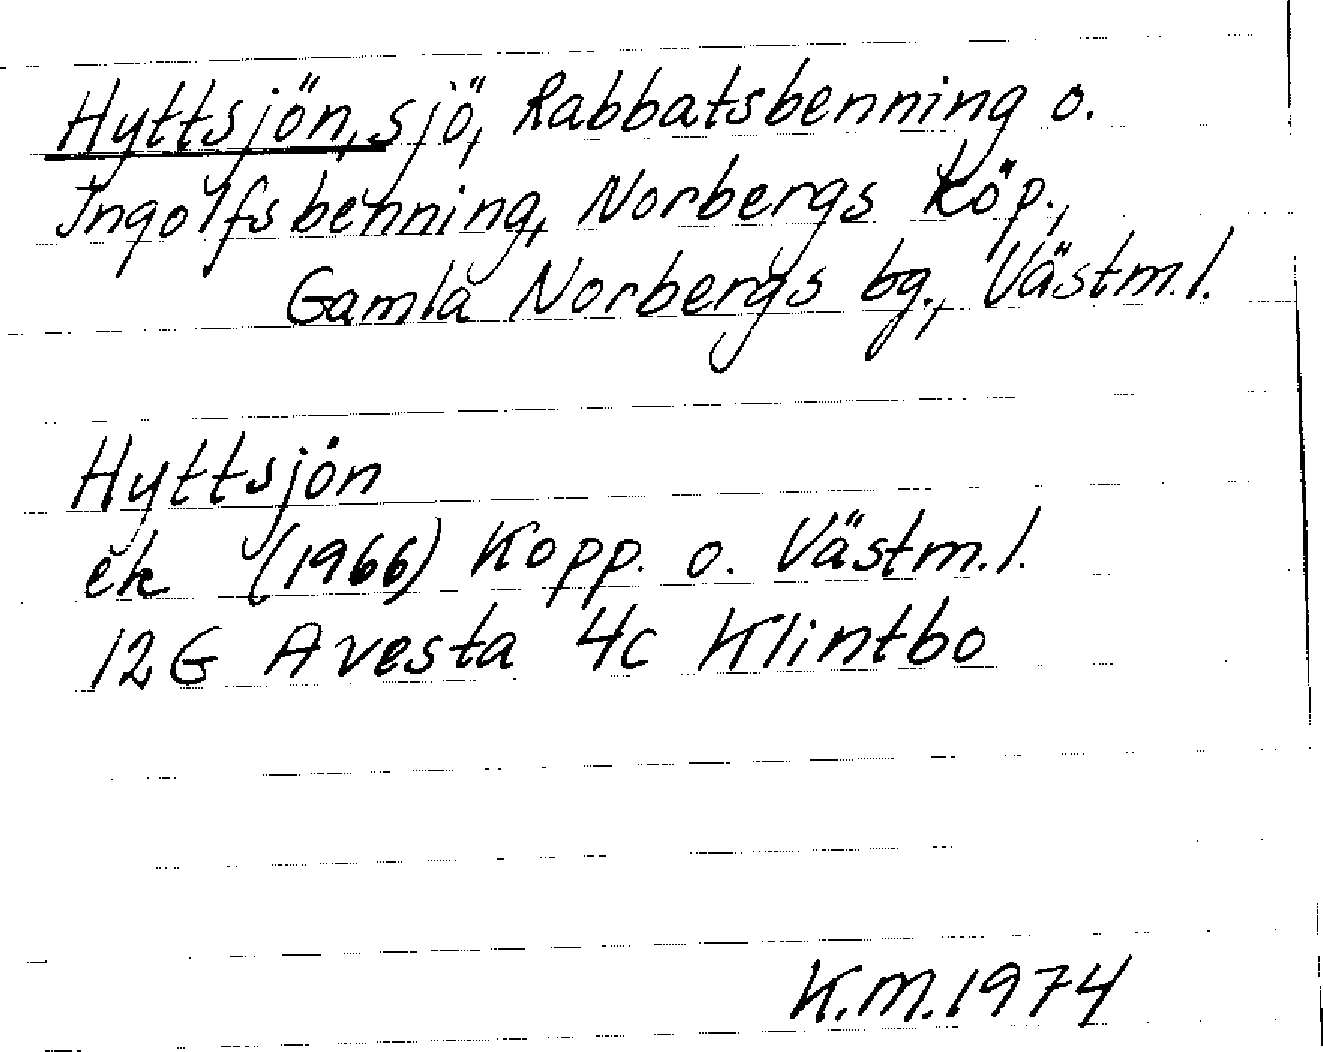 Hyttsjön, sjö, Rabbatsbenning o.
Ingolfsbenning, Norbergs köp.,
Gamla Norbergs bg., Västm.l.
Hyttsjön
ek (1966) Kopp. o. Västm.l.
12G Avesta 4c Klintbo
K.M.1974